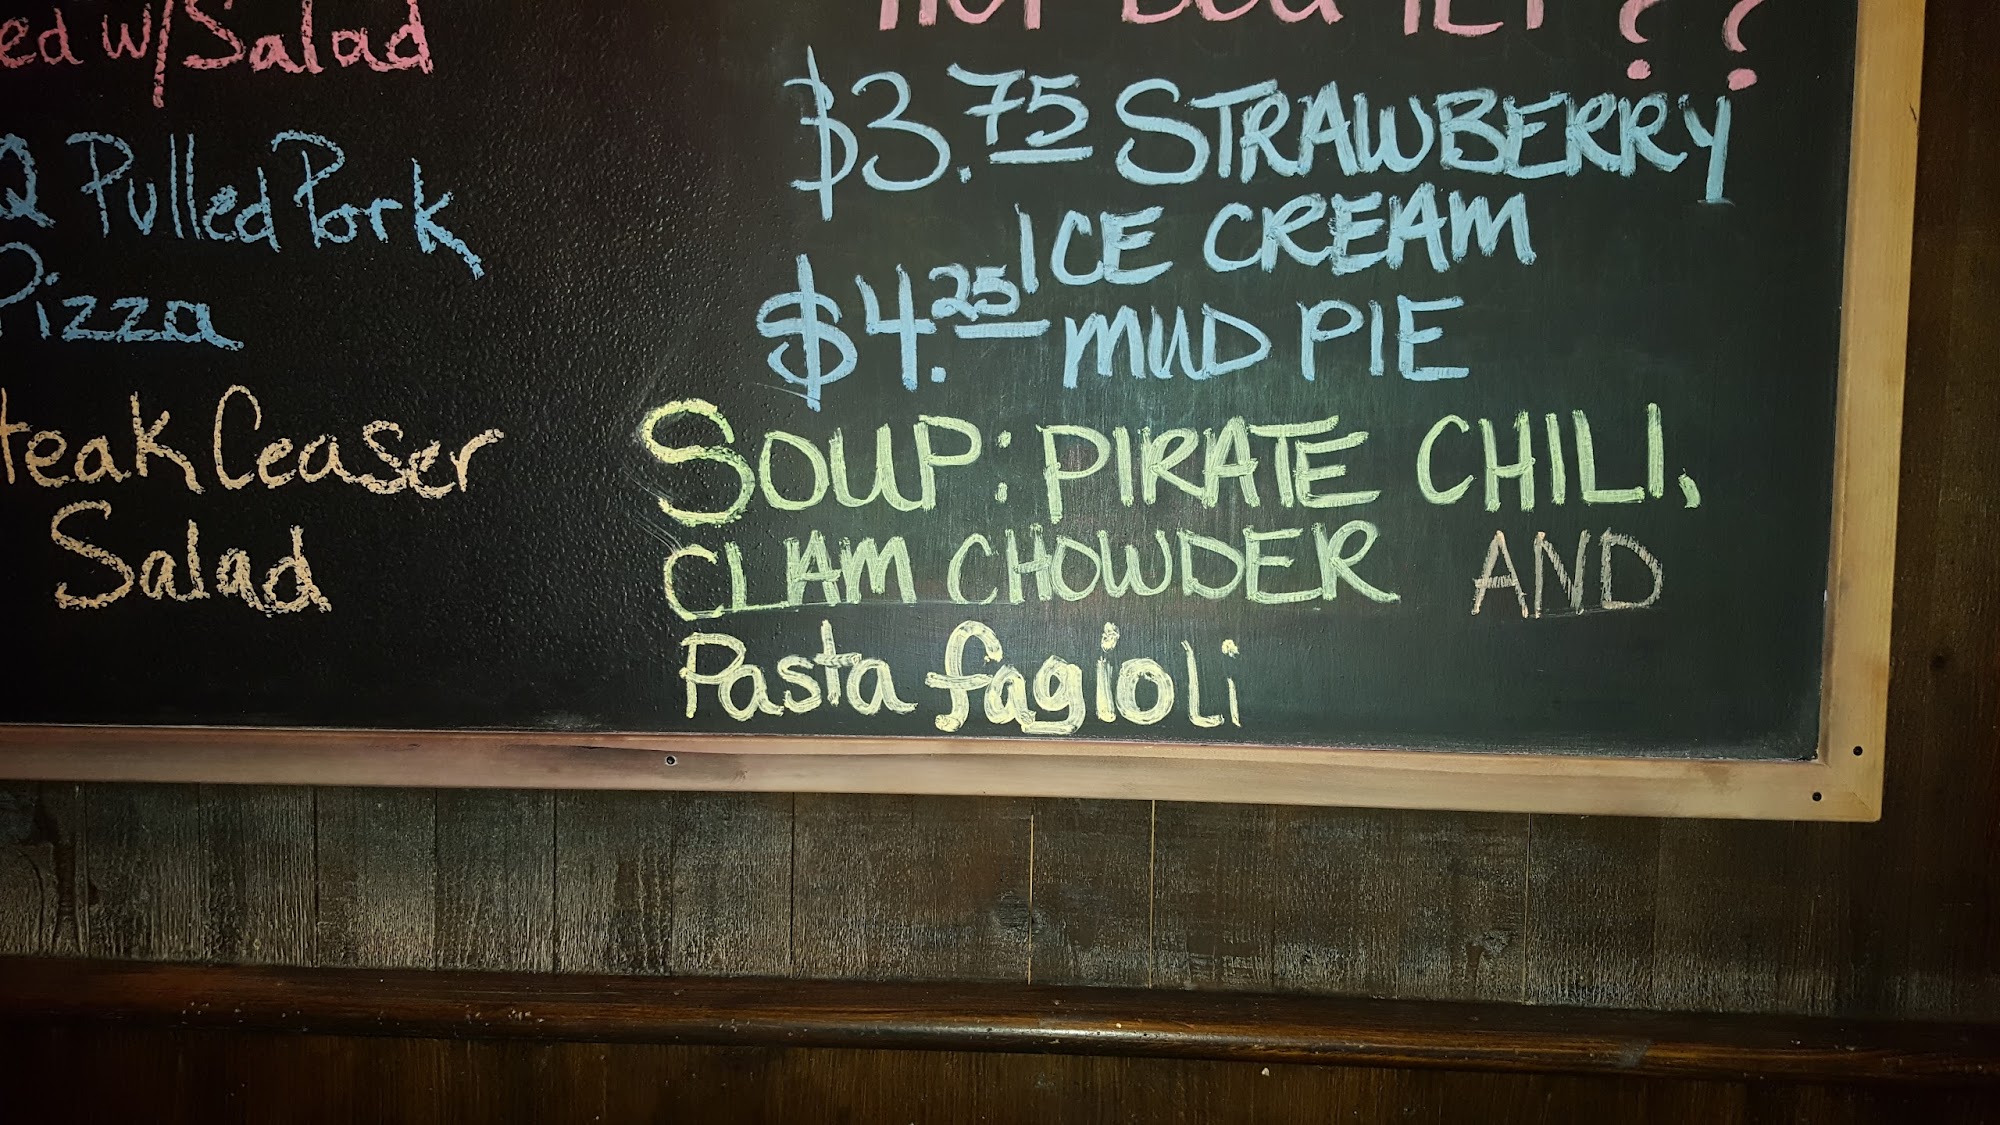 ed w/Salad
Q Pulled Pork
Pizza
teak Ceaser
Salad
HOT DOG YET??
$3.75 STRAWBERRY
ICE CREAM
$4.25 MUD PIE
SOUP: PIRATE CHILI,
CLAM CHOWDER AND
Pasta fagioli